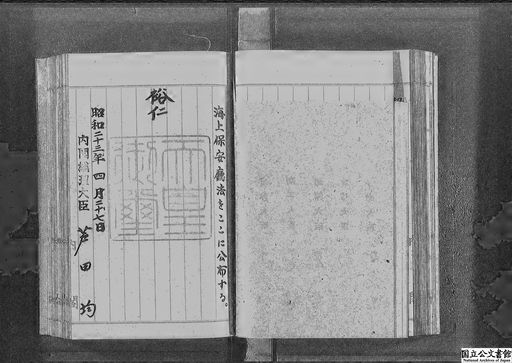 海上保安廳法をここに公布する。
裕仁
天皇御璽
昭和二十三年四月二十七日
内閣總理大臣 芦田均
国立公文書館
National Archives of Japan